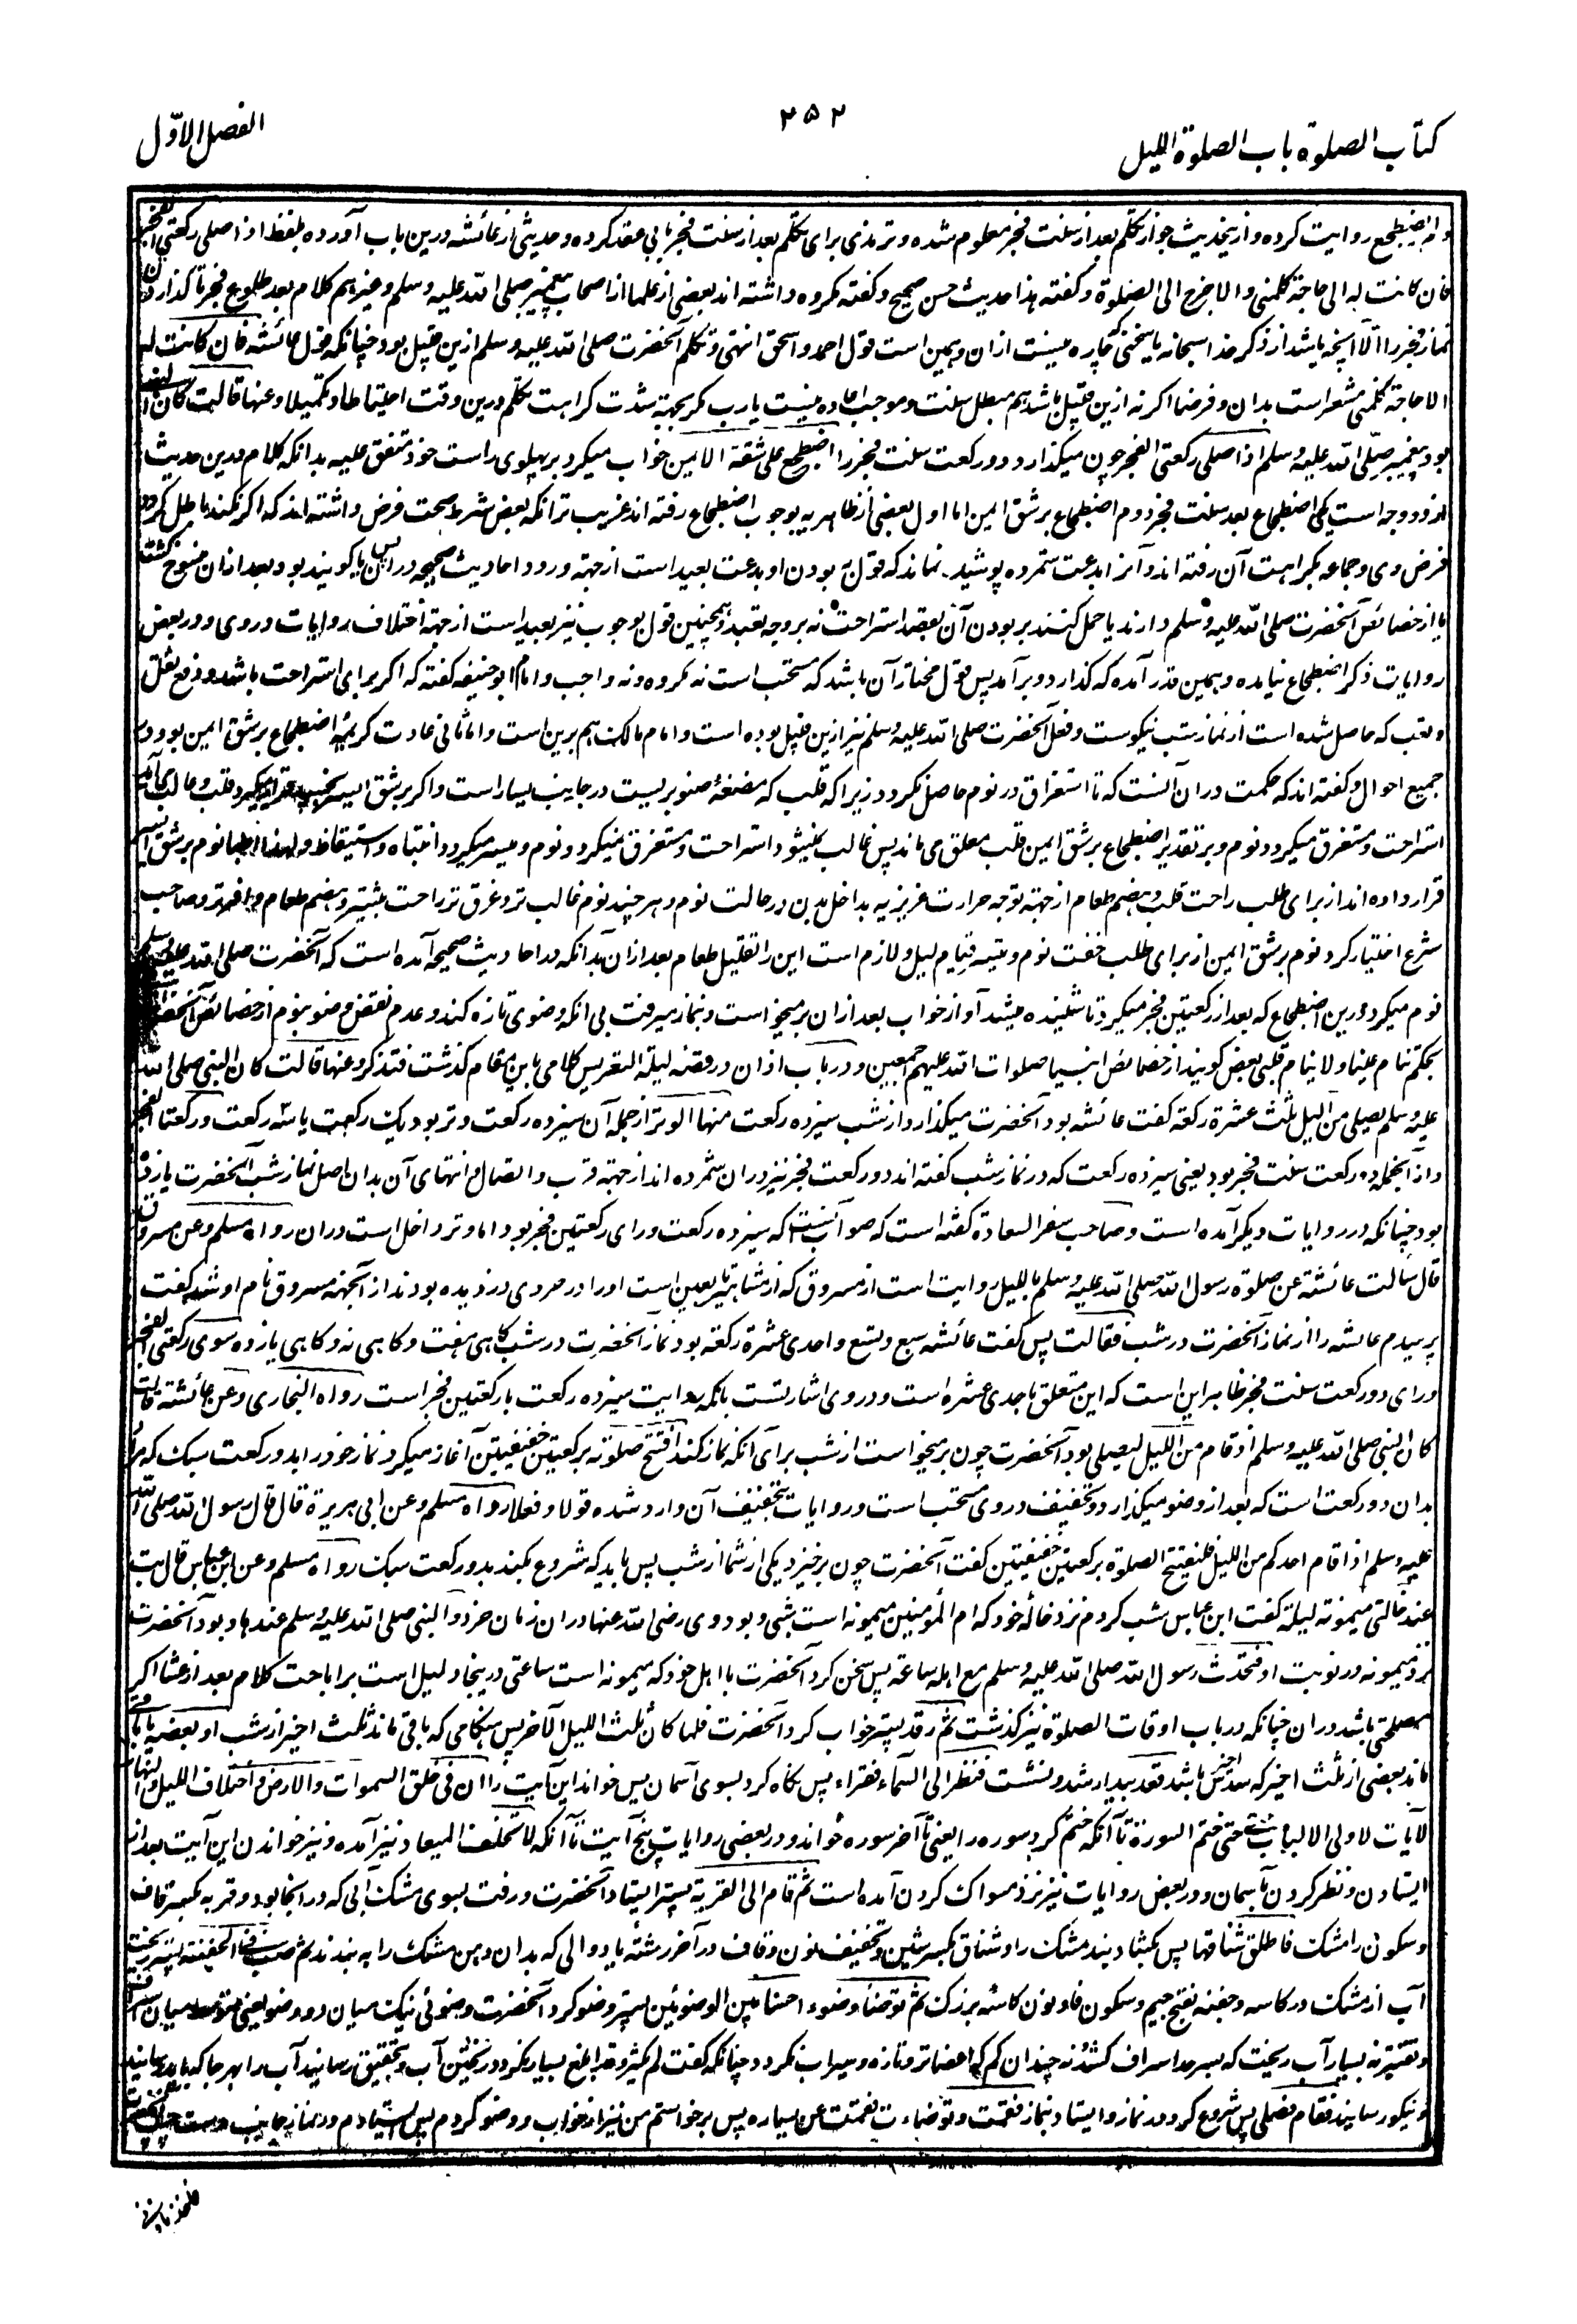 الفصل الاول
۲۵۲
کتاب الصلوة باب الصلوة اللیل
روایت کرده و ازینحدیث جواز تکلم بعد از سنت فجر معلوم شده و ترمذی برای تکلم بعد از سنت فجر بابی عقد کرده و حدیثی از عائشه درین باب آورده بلفظ اذا صلی رکعتی الفجر
فان کانت له الی حاجة کلمنی و الا خرج الی الصلوة و گفته هذا حدیث حسن صحیح و گفته مکروه داشته اند بعضی از علما از اصحاب پیغمبر صلی الله علیه وسلم و غیر هم کلام بعد طلوع فجر تا گذاردن
نماز فجر را الا آنچه باشد از ذکر خدا سبحانه یا سخنی که چاره نیست ازان و همین است قول احمد و اسحق انتهی و تکلم آنحضرت صلی الله علیه وسلم ازین قبیل بود چنانکه قول عائشه فان کانت له
الی حاجة کلمنی مشعر است بدان و فرضا اگر نه ازین قبیل باشد هم مبطل سنت و موجب اعاده نیست یارب مگر بجهة شدت کراهت تکلم درین وقت احتیاطا و تکمیلا و عنها قالت کان النبی
بود پیغمبر صلی الله علیه وسلم اذا صلی رکعتی الفجر چون میگذارد دو رکعت سنت فجر را اضطجع علی شقه الایمن خواب میکرد بر پهلوی راست خود متفق علیه بدانکه کلام درین حدیث
از دو وجه است یکی اضطجاع بعد سنت فجر دوم اضطجاع بر شق ایمن اما اول بعضی از ظاهریه بوجوب اضطجاع رفته اند غریب تر آنکه بعض شرط صحت فرض داشته اند که اگر نکند باطل گردد
فرض وی و جماعه بکراهت آن رفته اند و آنرا بدعت شمرده پوشیده نماند که قول به بودن او بدعت بعید است از جهة ورود احادیث صحیحه دران یا گویند بود و بعد ازان منسوخ گشته
یا از خصائص آنحضرت صلی الله علیه وسلم دارند یا حمل کنند بر بودن آن بقصد استراحت نه بر وجه تعبد و همچنین قول بوجوب نیز بعید است از جهة اختلاف روایات در وی و در بعض
روایات ذکر اضطجاع نیامده و همین قدر آمده که گذارد و برآمد پس قول مختار آن باشد که مستحب است نه مکروه و نه واجب و امام ابو حنیفه گفته که اگر برای استراحت باشد و دفع ثقل
و تعب که حاصل شده است از نماز شب نیکوست و فعل آنحضرت صلی الله علیه وسلم نیز ازین قبیل بوده است و امام مالک هم برین است و اما ثانی عادت کریمه اضطجاع بر شق ایمن بود در
جمیع احوال و گفته اند که حکمت دران آنست که تا استغراق در نوم حاصل نگردد زیرا که قلب که مضغهٔ صنوبریست در جانب یسار است و اگر بر شق ایسر بخسپد قرار میگیرد قلب و غالب می آید
استراحت و مستغرق میگردد نوم و بر تقدیر اضطجاع بر شق ایمن قلب معلق می ماند پس غالب نمیشود استراحت و مستغرق نمیگردد نوم و میسر میگردد انتباه و استیقاظ و لهذا اطبا نوم بر شق ایسر
قرار داده اند از برای طلب راحت قلب و هضم طعام از جهة توجه حرارت غریزیه بداخل بدن در حالت نوم و هر چند نوم غالب تر و غرق تر راحت بیشتر و هضم طعام وافر تر و صاحب
شرع اختیار کرد نوم بر شق ایمن از برای طلب خفت نوم و تهیه قیام لیل و لازم است این را تقلیل طعام بعد ازان بدانکه در احادیث صحیحه آمده است که آنحضرت صلی الله علیه وسلم
نوم میکرد درین اضطجاع که بعد از رکعتین فجر میکرد تا شنیده میشد آواز خواب بعد ازان برمیخاست و نماز میرفت بی آنکه وضوی تازه کند و عدم نقض وضو بنوم از خصائص آنحضرت
بحکم تنام عینای و لا ینام قلبی بعض گویند از خصائص انبیا صلوات الله علیهم اجمعین و در باب اذان در قصه لیلة التعریس کلامی باین مقام گذشت فتذکر و عنها قالت کان النبی صلی الله
علیه وسلم یصلی من اللیل ثلث عشرة رکعة گفت عائشه بود آنحضرت میگذارد از شب سیزده رکعت منها الوتر از جمله آن سیزده رکعت وتر بود یک رکعت یا سه رکعت و رکعتا الفجر
و از آنجمله دو رکعت سنت فجر بود یعنی سیزده رکعت که در نماز شب گفته اند دو رکعت فجر نیز دران شمرده اند از جهة قرب و اتصال و انتهای آن بدان اصل نماز شب آنحضرت یازده
بود چنانکه در روایات دیگر آمده است و صاحب سفر السعادة گفته است که صواب آنست که سیزده رکعت ورای رکعتین فجر بود اما وتر داخل است دران رواه مسلم و عن مسروق
قال سألت عائشة عن صلوة رسول الله صلی الله علیه وسلم باللیل روایت است از مسروق که از مشاهیر تابعین است او را در خردی دزدیده بودند از آنجهة مسروق نام او شد گفت
پرسیدم عائشه را از نماز آنحضرت در شب فقالت پس گفت عائشه سبع و تسع و احدی عشرة رکعة بود نماز آنحضرت در شب گاهی هفت و گاهی نه و گاهی یازده سوی رکعتی الفجر
ورای دو رکعت سنت فجر ظاهر این است که این متعلق باحدی عشره است و دروی اشارتست بآنکه روایت سیزده رکعت با رکعتین فجر است رواه البخاری و عن عائشة قالت
کان النبی صلی الله علیه وسلم اذا قام من اللیل لیصلی بود آنحضرت چون برمیخاست از شب برای آنکه نماز کند افتتح صلوته برکعتین خفیفتین آغاز میکرد نماز خود را بدو رکعت سبک که مراد
بدان دو رکعت است که بعد از وضو میگذارد و تخفیف در وی مستحب است و روایات بتخفیف آن وارد شده قولا و فعلا رواه مسلم و عن ابی هریرة قال قال رسول الله صلی الله
علیه وسلم اذا قام احدکم من اللیل فلیفتتح الصلوة برکعتین خفیفتین گفت آنحضرت چون برخیزد یکی از شما از شب پس باید که شروع بکند بدو رکعت سبک رواه مسلم و عن ابن عباس قال بت
عند خالتی میمونة لیلة گفت ابن عباس شب کردم نزد خالهٔ خود که ام المؤمنین میمونه است شبی و بود وی رضی الله عنها دران زمان خرد و النبی صلی الله علیه وسلم عندها و بود آنحضرت
نزد میمونه در نوبت او فتحدث رسول الله صلی الله علیه وسلم مع اهله ساعة پس سخن کرد آنحضرت با اهل خود که میمونه است ساعتی درینجا دلیل است بر اباحت کلام بعد از عشا اگر
مصلحتی باشد دران چنانکه در باب اوقات الصلوة نیز گذشت ثم رقد پستر خواب کرد آنحضرت فلما کان ثلث اللیل الآخر پس هنگامی که باقی ماند ثلث اخیر از شب او بعضه یا باقی
ماند بعضی از ثلث اخیر که سدس اخیر باشد قعد بیدار شد و نشست فنظر الی السماء فقرأ پس نگاه کرد بسوی آسمان پس خواند این آیت را ان فی خلق السموات والارض و اختلاف اللیل والنهار
لآیات لاولی الالباب حتی ختم السورة تا آنکه ختم کرد سوره را یعنی تا آخر سوره خواند و در بعضی روایات پنج آیت تا آنکه لا تخلف المیعاد نیز آمده و نیز خواندن این آیت بعد از
ایستادن و نظر کردن بآسمان و در بعض روایات نیز نزد مسواک کردن آمده است ثم قام الی القربة پستر ایستاد آنحضرت و رفت بسوی مشک آبی که در آنجا بود و قربه بکسر قاف
و سکون را مشک فاطلق شناقها پس بکشاد بند مشک را و شناق بکسر شین و تخفیف نون و قاف در آخر رشته یا دوالی که بدان دهن مشک را به بندند ثم صب فی الجفنة پستر ریخت
آب از مشک در کاسه و جفنه بفتح جیم و سکون فا و نون کاسه بزرگ ثم توضأ وضوءا حسنا بین الوضوئین پستر وضو کرد آنحضرت وضوئی نیک میان دو وضو یعنی متوسط میان اسراف
و تقتیر نه بسیار آب ریخت که بسر حد اسراف کشد و نه چندان کم که اعضا تر و تازه و سیراب نگردد چنانکه گفت لم یکثر و قد ابلغ بسیار نکرد در ریختن آب و بتحقیق رسانید آب را بهر جا که باید رسانید
و نیکو رسانید فقام فصلی پس شروع کرد در نماز و ایستاد بنماز فقمت و توضأت فقمت عن یساره پس برخواستم من نیز از خواب و وضو کردم پس ایستادم در نماز جانب دست چپ آنحضرت